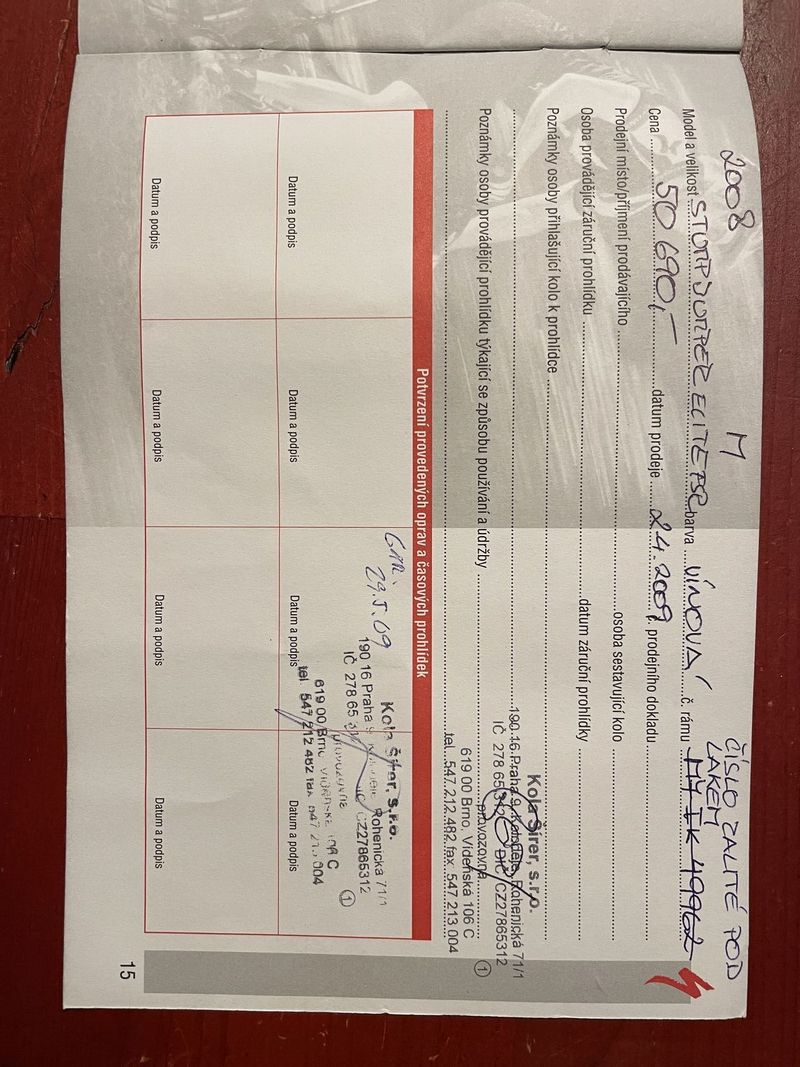 2008 M ČÍSLO ZALITÉ POD
LAKEM
Model a velikost STUMPJUMPER ELITE FSR barva VÍNOVÁ č. rámu
Cena 50 690,- datum prodeje 2.4.2009 č. prodejního dokladu
Prodejní místo/příjmení prodávajícího osoba sestavující kolo
Osoba provádějící záruční prohlídku datum záruční prohlídky
Poznámky osoby přihlašující kolo k prohlídce
Kola Šírer, s.r.o.
190 16 Praha 9, Koloděje, Rohenická 71/1
IČ 278 65 312 DIČ CZ27865312
provozovna
619 00 Brno, Vídeňská 106 C
tel. 547 212 482 fax 547 213 004
1
Poznámky osoby provádějící prohlídku týkající se způsobu používání a údržby
Potvrzení provedených oprav a časových prohlídek
GAR.
29.5.09
Kola Šírer, s.r.o.
190 16 Praha 9, Koloděje, Rohenická 71/1
IČ 278 65 DIČ CZ27865312
provozovna
619 00 Brno, Vídeňská 106 C
tel. 547 212 482 fax 547 213 004
1
Datum a podpis Datum a podpis Datum a podpis Datum a podpis
Datum a podpis Datum a podpis Datum a podpis Datum a podpis
15